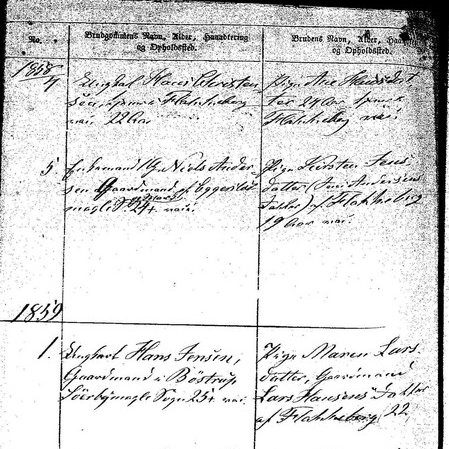 No.
Brudgommens Navn, Alder, Haandtering
og Opholdssted.
Brudens Navn, Alder, Haandtering
og Opholdssted.
1858
4
Ungkarl Hans
i Flakkeberg
22 Aar
Pige Ane Hansdat
ter 24 Aar
Flakkeberg
5.
Enkemand Niels Ander-
sen Gaardmand af Eggerslev
magle S.
Pige Kirsten Jens
datter (Jens Andersens
Datter) af Flakkeberg
19 Aar
1859
1.
Ungkarl Hans Jensen,
Gaardmand i Böstrup
Sørbymagle Sogn 25
Pige Maren Lars
datter, Gaardmand
Lars Hansens Datter
af Flakkeberg 22